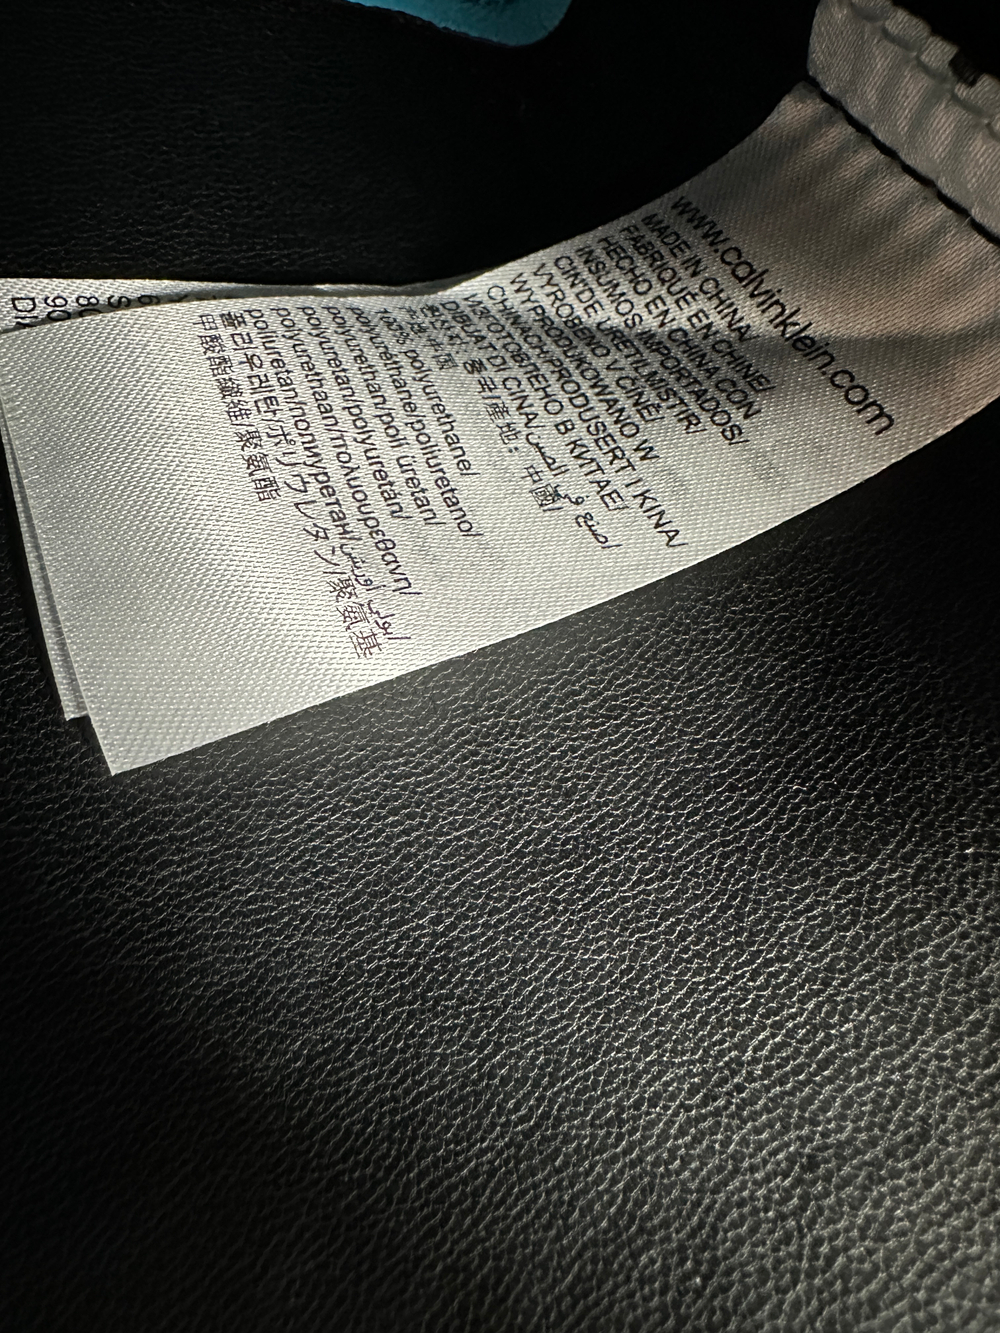 www.calvinklein.com
MADE IN CHINA/
FABRIQUÉ EN CHINE/
HECHO EN CHINA CON
INSUMOS IMPORTADOS/
CIN'DE ÜRETİLMİSTİR/
VYROBENO V CINĚ/
WYPRODUKOWANO W
CHINACH/PRODUSERT I KINA/
ИЗГОТОВЛЕНО В КИТАЕ/
DIBUAT DI CINA/صنع في الصين/
원산지: 중국/產地: 中國/
100% polyurethane/
polyurethane/poliuretano/
polyurethan/poli üretan/
polyuretan/polyuretán/
polyurethaan/πολυουρεθανη/
poliuretan/полиуретан/
폴리우레탄/ポリウレタン/聚氨基
甲酸酯纖維/聚氨酯